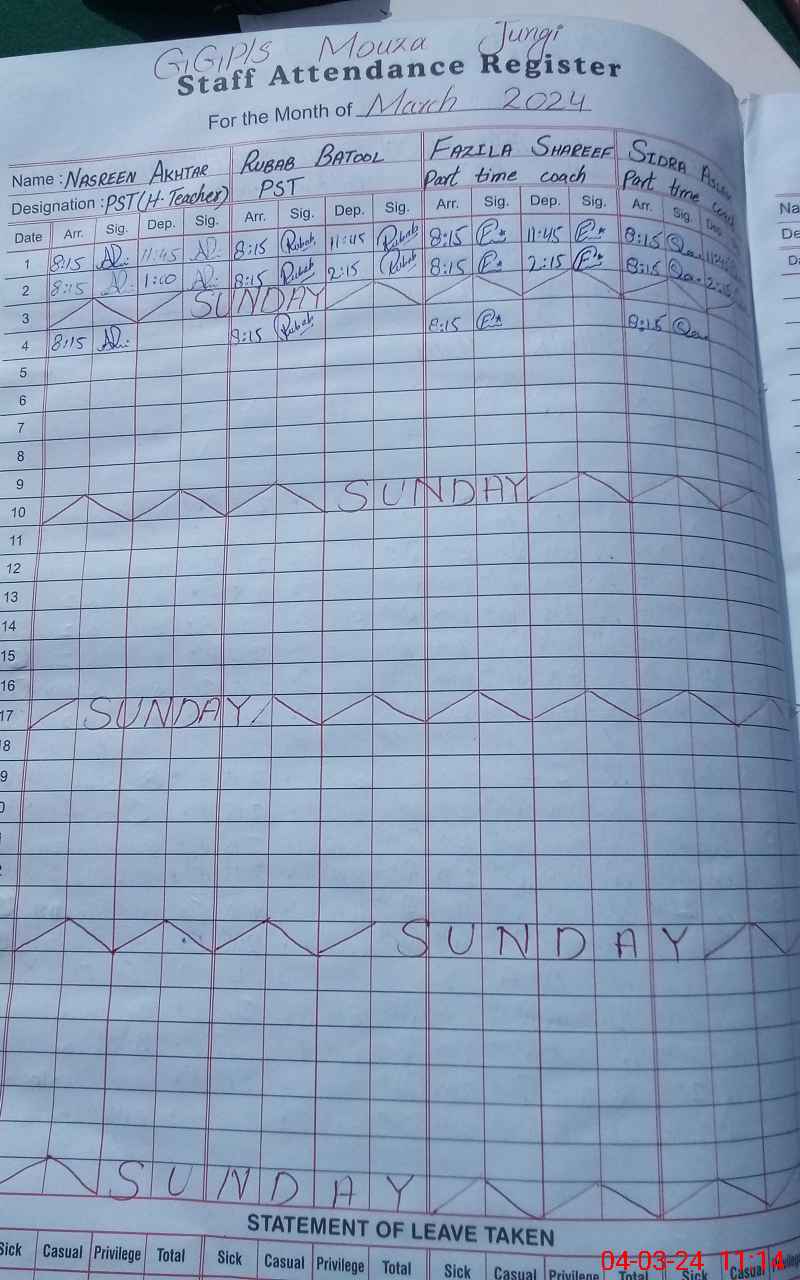 GGPS Mouza Jungi
Staff Attendance Register
For the Month of March 2024
Name : NASREEN AKHTAR RUBAB BATOOL FAZILA SHAREEF SIDRA
Designation : PST (H. Teacher) PST Part time coach Part time coach
Date Arr. Sig. Dep. Sig. Arr. Sig. Dep. Sig. Arr. Sig. Dep. Sig. Arr. Sig. Dep.
1 8:15 11:45 8:15 Rubab 11:45 Rubab 8:15 11:45 8:15 11:45
2 8:15 1:00 8:15 Rubab 2:15 Rubab 8:15 2:15 8:15 2:15
3 SUNDAY
4 8:15 8:15 Rubab 8:15 8:15
5
6
7
8
9
10 SUNDAY
11
12
13
14
15
16
17 SUNDAY
8
9
0
SUNDAY
SUNDAY
STATEMENT OF LEAVE TAKEN
Sick Casual Privilege Total Sick Casual Privilege Total Sick Casual Privilege Total Sick Casual
04-03-24 11:14